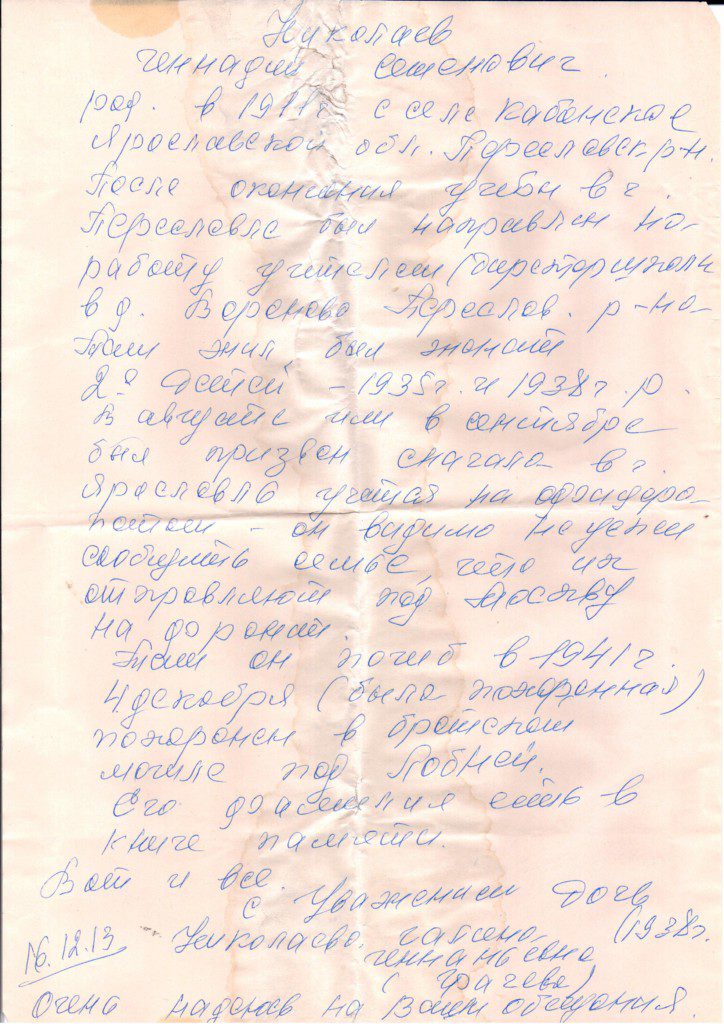 Николаев
Геннадий Семенович.
род. в 1911г с селе Кабанское
Ярославской обл. Переславск р-н.
После окончания учебы в г.
Переславле был направлен на
работу учителем (директор школы
в д. Вороново Переслав. р-на
Там жил, был женат
2е детей - 1935г. и 1938г.р.
В августе или в сентябре
был призван сначала в г.
Ярославль учится на офицера
потом - он видимо не успел
сообщить семье, что их
отправляют под Москву
на
Там он погиб в 1941г.
4 декабря (была похоронная)
похоронен в братском
могиле под Лобней.
Его фамилия есть в
книге памяти.
Вот и все.
с Уважением Дочь
Николаева (1938г.
16.12.13
Геннадьевна
(Грачева)
Очень надеюсь на Ваши обещания.